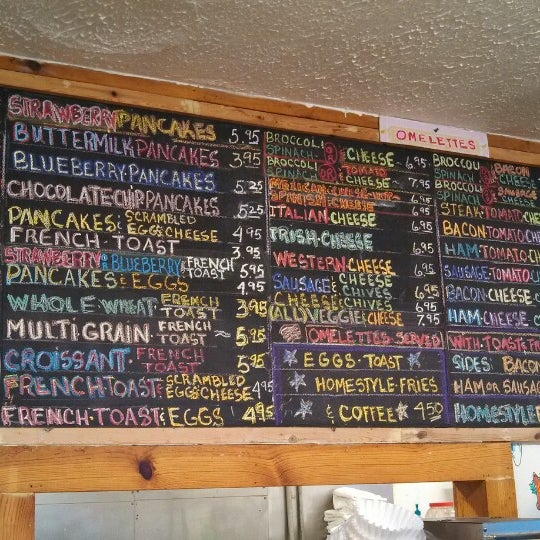 STRAWBERRY PANCAKES 5.95
BUTTERMILK PANCAKES 3.95
BLUEBERRY PANCAKES 5.25
CHOCOLATE CHIP PANCAKES 5.25
PANCAKES & SCRAMBLED EGGS & CHEESE 4.95
FRENCH TOAST 3.95
STRAWBERRY & BLUEBERRY FRENCH TOAST 5.95
PANCAKES & EGGS 4.95
WHOLE WHEAT FRENCH TOAST 3.95
MULTI GRAIN FRENCH TOAST 5.95
CROISSANT FRENCH TOAST 5.95
FRENCH TOAST & SCRAMBLED EGGS & CHEESE 4.95
FRENCH TOAST & EGGS 4.95
OMELETTES
BROCCOLI
SPINACH OR & CHEESE 6.95
BROCCOLI
SPINACH OR TOMATO CHEESE 7.95
MEXICAN CHEESE
SPANISH CHEESE 6.95
ITALIAN CHEESE 6.95
IRISH CHEESE 6.95
WESTERN CHEESE 6.95
SAUSAGE & CHEESE & CHIVES 6.95
CHEESE & CHIVES 6.95
(ALL) VEGGIE & CHEESE 7.95
OMELETTES SERVED
EGGS TOAST
HOMESTYLE FRIES
& COFFEE 4.50
BROCCOLI
SPINACH OR BACON CHEESE
BROCCOLI
SPINACH OR SAUSAGE CHEESE
STEAK TOMATO CHE
BACON TOMATO CHE
HAM TOMATO CH
SAUSAGE TOMATO C
BACON CHEESE C
HAM CHEESE C
WITH TOAST & F
SIDES BACO
HAM OR SAUSAG
HOMESTYLE F